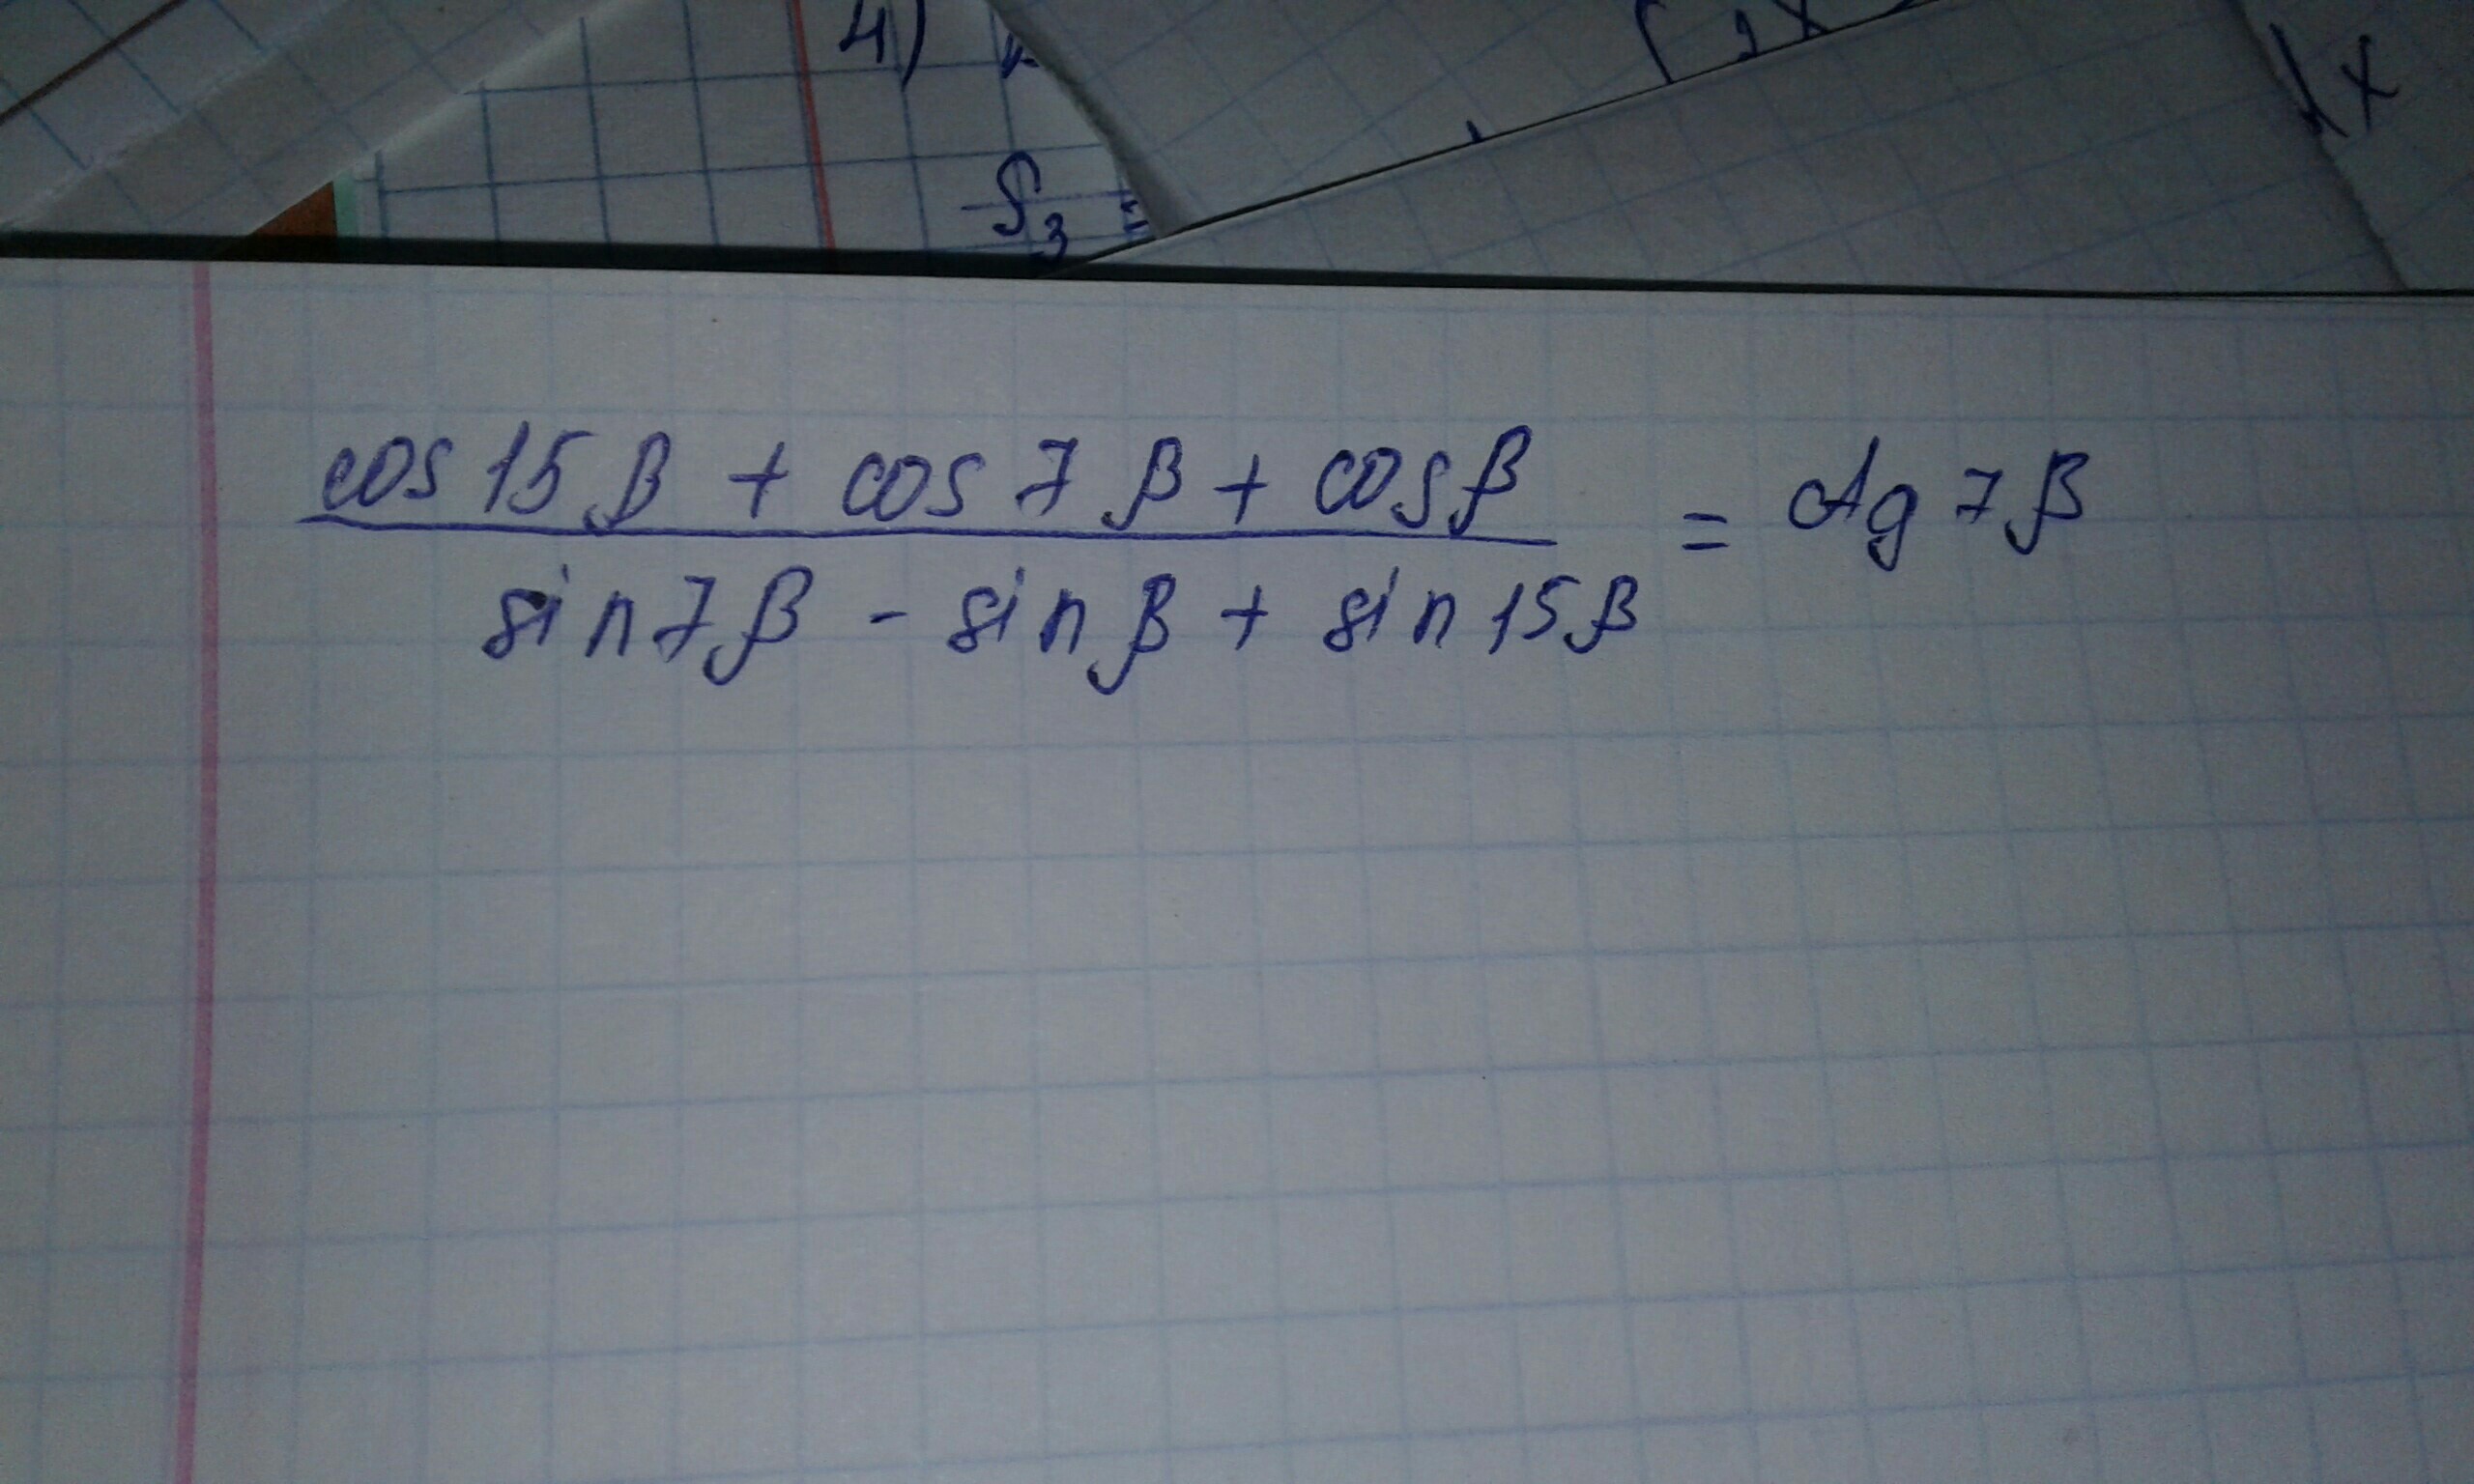 4)
S₃ =
x
cos 15β + cos 7β + cosβ
sin7β - sinβ + sin 15β
= ctg 7β